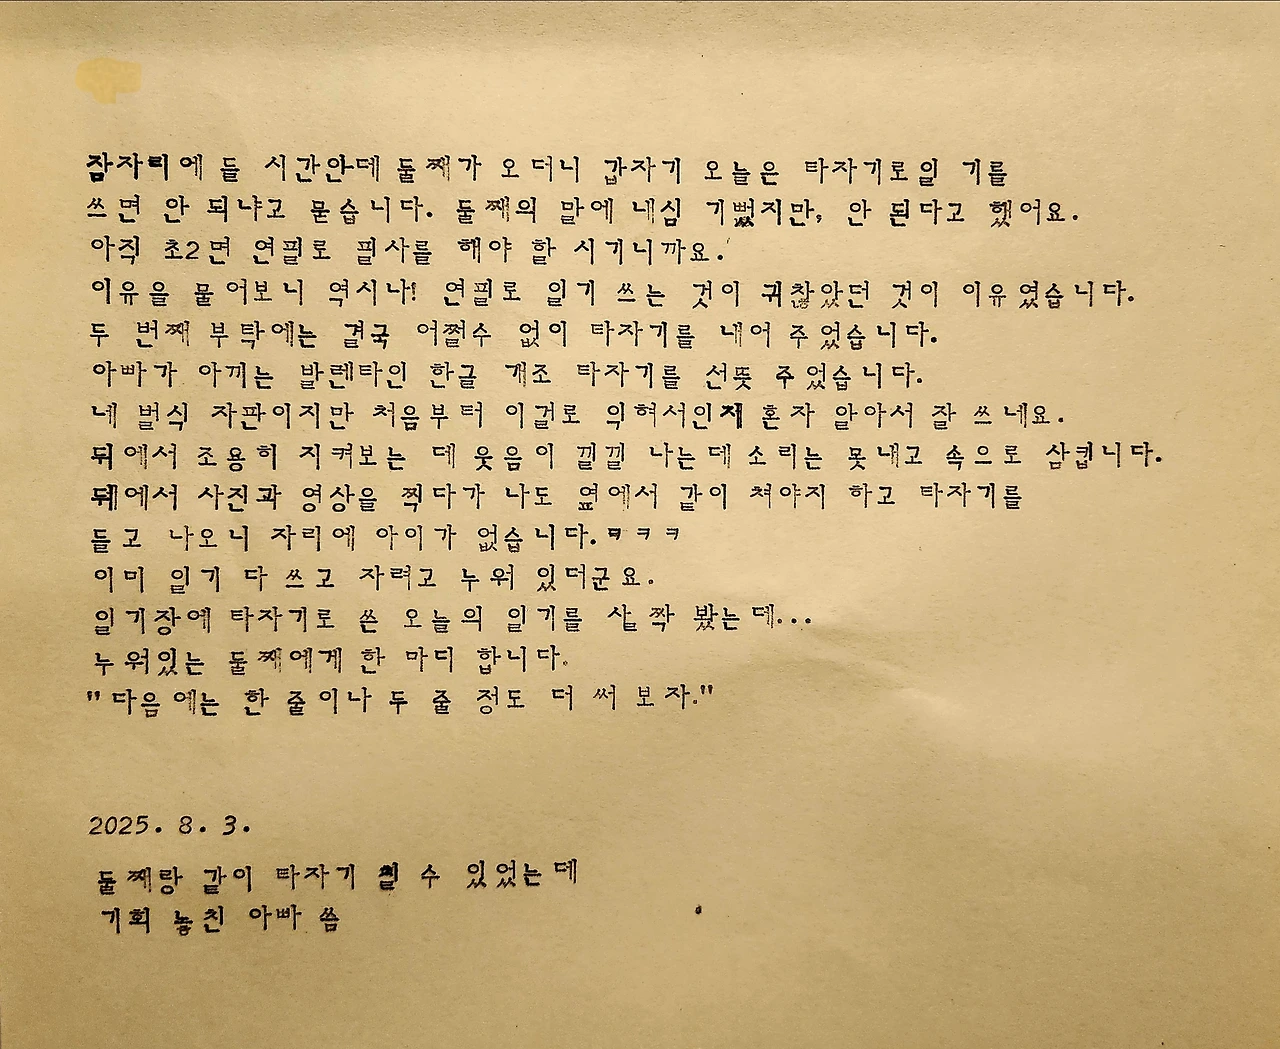 잠자리에 들 시간안데 둘째가 오더니 갑자기 오늘은 타자기로일 기를
쓰면 안 되냐고 묻습니다. 둘째의 말에 내심 기뻤지만, 안 된다고 했어요.
아직 초2면 연필로 필사를 해야 할 시기니까요.
이유을 물어보니 역시나! 연필로 일기 쓰는 것이 귀찮았던 것이 이유였습니다.
두 번째 부탁에는 결국 어쩔수 없이 타자기를 내어 주었습니다.
아빠가 아끼는 발렌타인 한글 개조 타자기를 선뜻 주었습니다.
네 벌식 자판이지만 처음부터 이걸로 익혀서인지 혼자 알아서 잘 쓰네요.
뒤에서 조용히 지켜보는 데 웃음이 낄낄 나는데 소리는 못내고 속으로 삼킵니다.
뒤에서 사진과 영상을 찍다가 나도 옆에서 같이 쳐야지 하고 타자기를
들고 나오니 자리에 아이가 없습니다.ㅋㅋㅋ
이미 일기 다 쓰고 자려고 누워 있더군요.
일기장에 타자기로 쓴 오늘의 일기를 살짝 봤는데...
누워있는 둘째에게 한 마디 합니다.
"다음에는 한 줄이나 두 줄 정도 더 써 보자."
2025. 8. 3.
둘째랑 같이 타자기 칠 수 있었는데
기회 놓친 아빠 씀